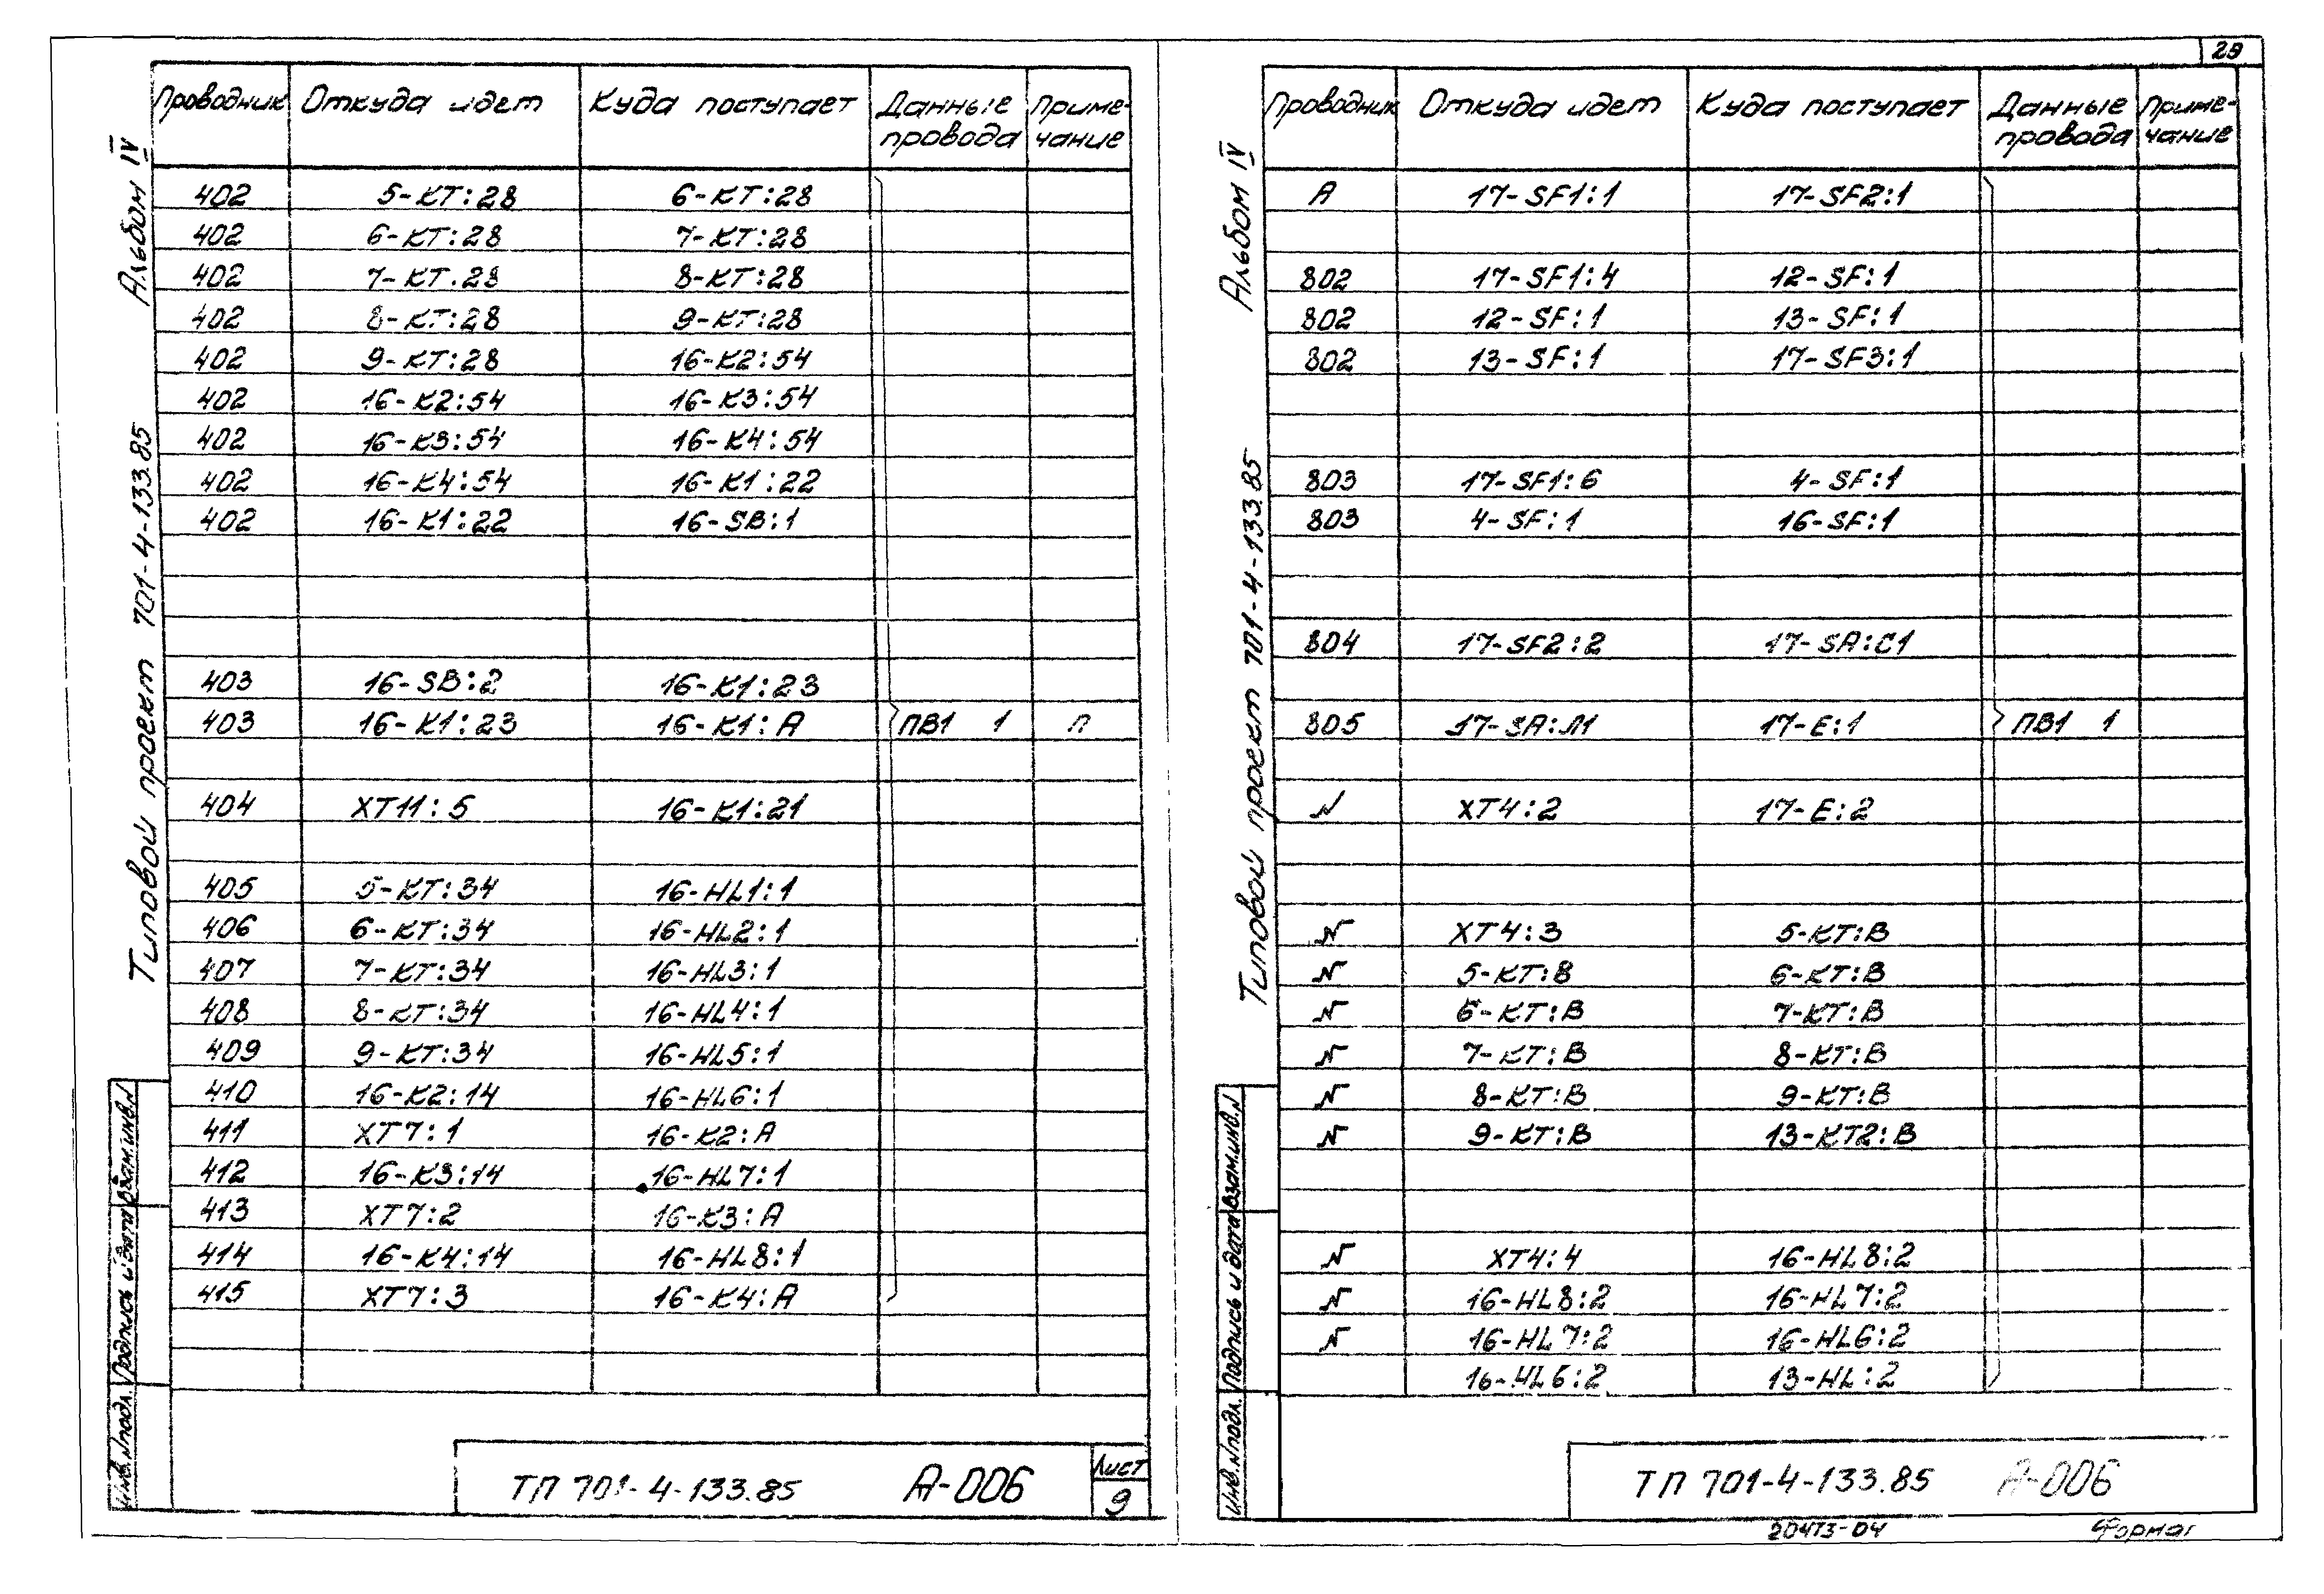 29
Альбом IV
Типовой проект 701-4-133.85
Проводник Откуда идет Куда поступает Данные провода Приме-чание
402 5-КТ:28 6-КТ:28
402 6-КТ:28 7-КТ:28
402 7-КТ.28 8-КТ:28
402 8-КТ:28 9-КТ:28
402 9-КТ:28 16-К2:54
402 16-К2:54 16-К3:54
402 16-К3:54 16-К4:54
402 16-К4:54 16-К1:22
402 16-К1:22 16-SB:1
403 16-SB:2 16-К1:23
403 16-К1:23 16-К1:А ПВ1 1 П
404 ХТ11:5 16-К1:21
405 5-КТ:34 16-HL1:1
406 6-КТ:34 16-HL2:1
407 7-КТ:34 16-HL3:1
408 8-КТ:34 16-HL4:1
409 9-КТ:34 16-HL5:1
410 16-К2:14 16-HL6:1
411 ХТ7:1 16-К2:А
412 16-К3:14 16-HL7:1
413 ХТ7:2 16-К3:А
414 16-К4:14 16-HL8:1
415 ХТ7:3 16-К4:А
Инв.N подл. Подпись и дата Взам.инв.N
ТП 701-4-133.85 А-006 Лист 9
Альбом IV
Типовой проект 701-4-133.85
Проводник Откуда идет Куда поступает Данные провода Приме-чание
А 17-SF1:1 17-SF2:1
802 17-SF1:4 12-SF:1
802 12-SF:1 13-SF:1
802 13-SF:1 17-SF3:1
803 17-SF1:6 4-SF:1
803 4-SF:1 16-SF:1
804 17-SF2:2 17-SA:C1
805 17-SA:Л1 17-E:1 ПВ1 1
N ХТ4:2 17-E:2
N ХТ4:3 5-КТ:В
N 5-КТ:В 6-КТ:В
N 6-КТ:В 7-КТ:В
N 7-КТ:В 8-КТ:В
N 8-КТ:В 9-КТ:В
N 9-КТ:В 13-КТ2:В
N ХТ4:4 16-HL8:2
N 16-HL8:2 16-HL7:2
N 16-HL7:2 16-HL6:2
16-HL6:2 13-HL:2
Инв.N подл. Подпись и дата Взам.инв.N
ТП 701-4-133.85 А-006
20473-04 Формат